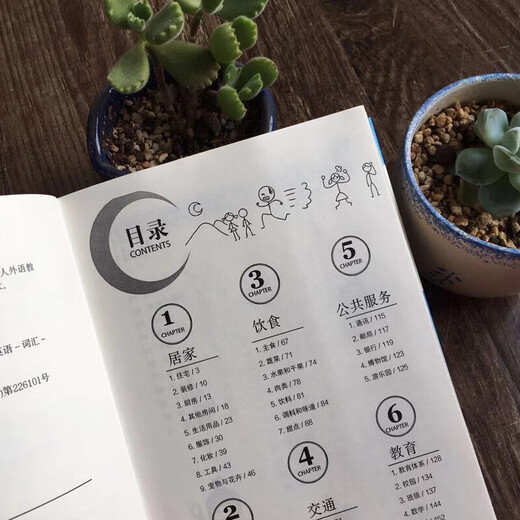 人外语教
英语－词汇－
第226101号
目录
CONTENTS
1
CHAPTER
居家
1. 住宅 / 3
2. 装修 / 10
3. 厨房 / 13
4. 其他房间 / 18
5. 生活用品 / 23
6. 服饰 / 30
7. 化妆 / 39
8. 工具 / 43
9. 宠物与花卉 / 46
2
3
CHAPTER
饮食
1. 主食 / 67
2. 蔬菜 / 71
3. 水果和干果 / 74
4. 肉类 / 78
5. 饮料 / 81
6. 调料和味道 / 84
7. 甜点 / 88
4
CHAPTER
交通
5
CHAPTER
公共服务
1. 通讯 / 115
2. 邮局 / 117
3. 银行 / 119
4. 博物馆 / 123
5. 游乐园 / 125
6
CHAPTER
教育
1. 教育体系 / 128
2. 校园 / 134
3. 班级 / 137
4. 数学 / 144
152